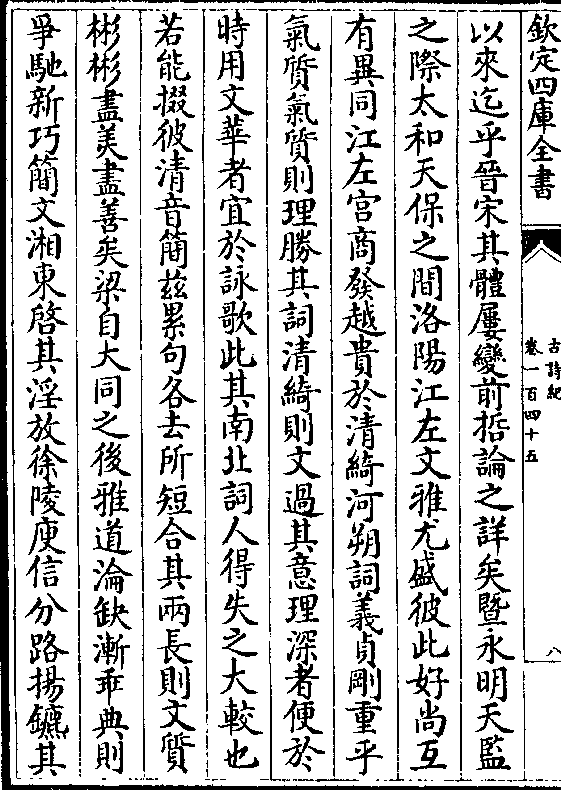 欽定四庫全書
古詩紀
卷一百四十五
八
以來迄乎晉宋其體屢變前哲論之詳矣暨永明天監
之際太和天保之間洛陽江左文雅尤盛彼此好尚互
有異同江左宮商發越貴於清綺河朔詞義貞剛重乎
氣質氣質則理勝其詞清綺則文過其意理深者便於
時用文華者宜於詠歌此其南北詞人得失之大較也
若能掇彼清音簡兹累句各去所短合其兩長則文質
彬彬盡美盡善矣梁自大同之後雅道淪缺漸乖典則
爭馳新巧簡文湘東啓其淫放徐陵庾信分路揚鑣其